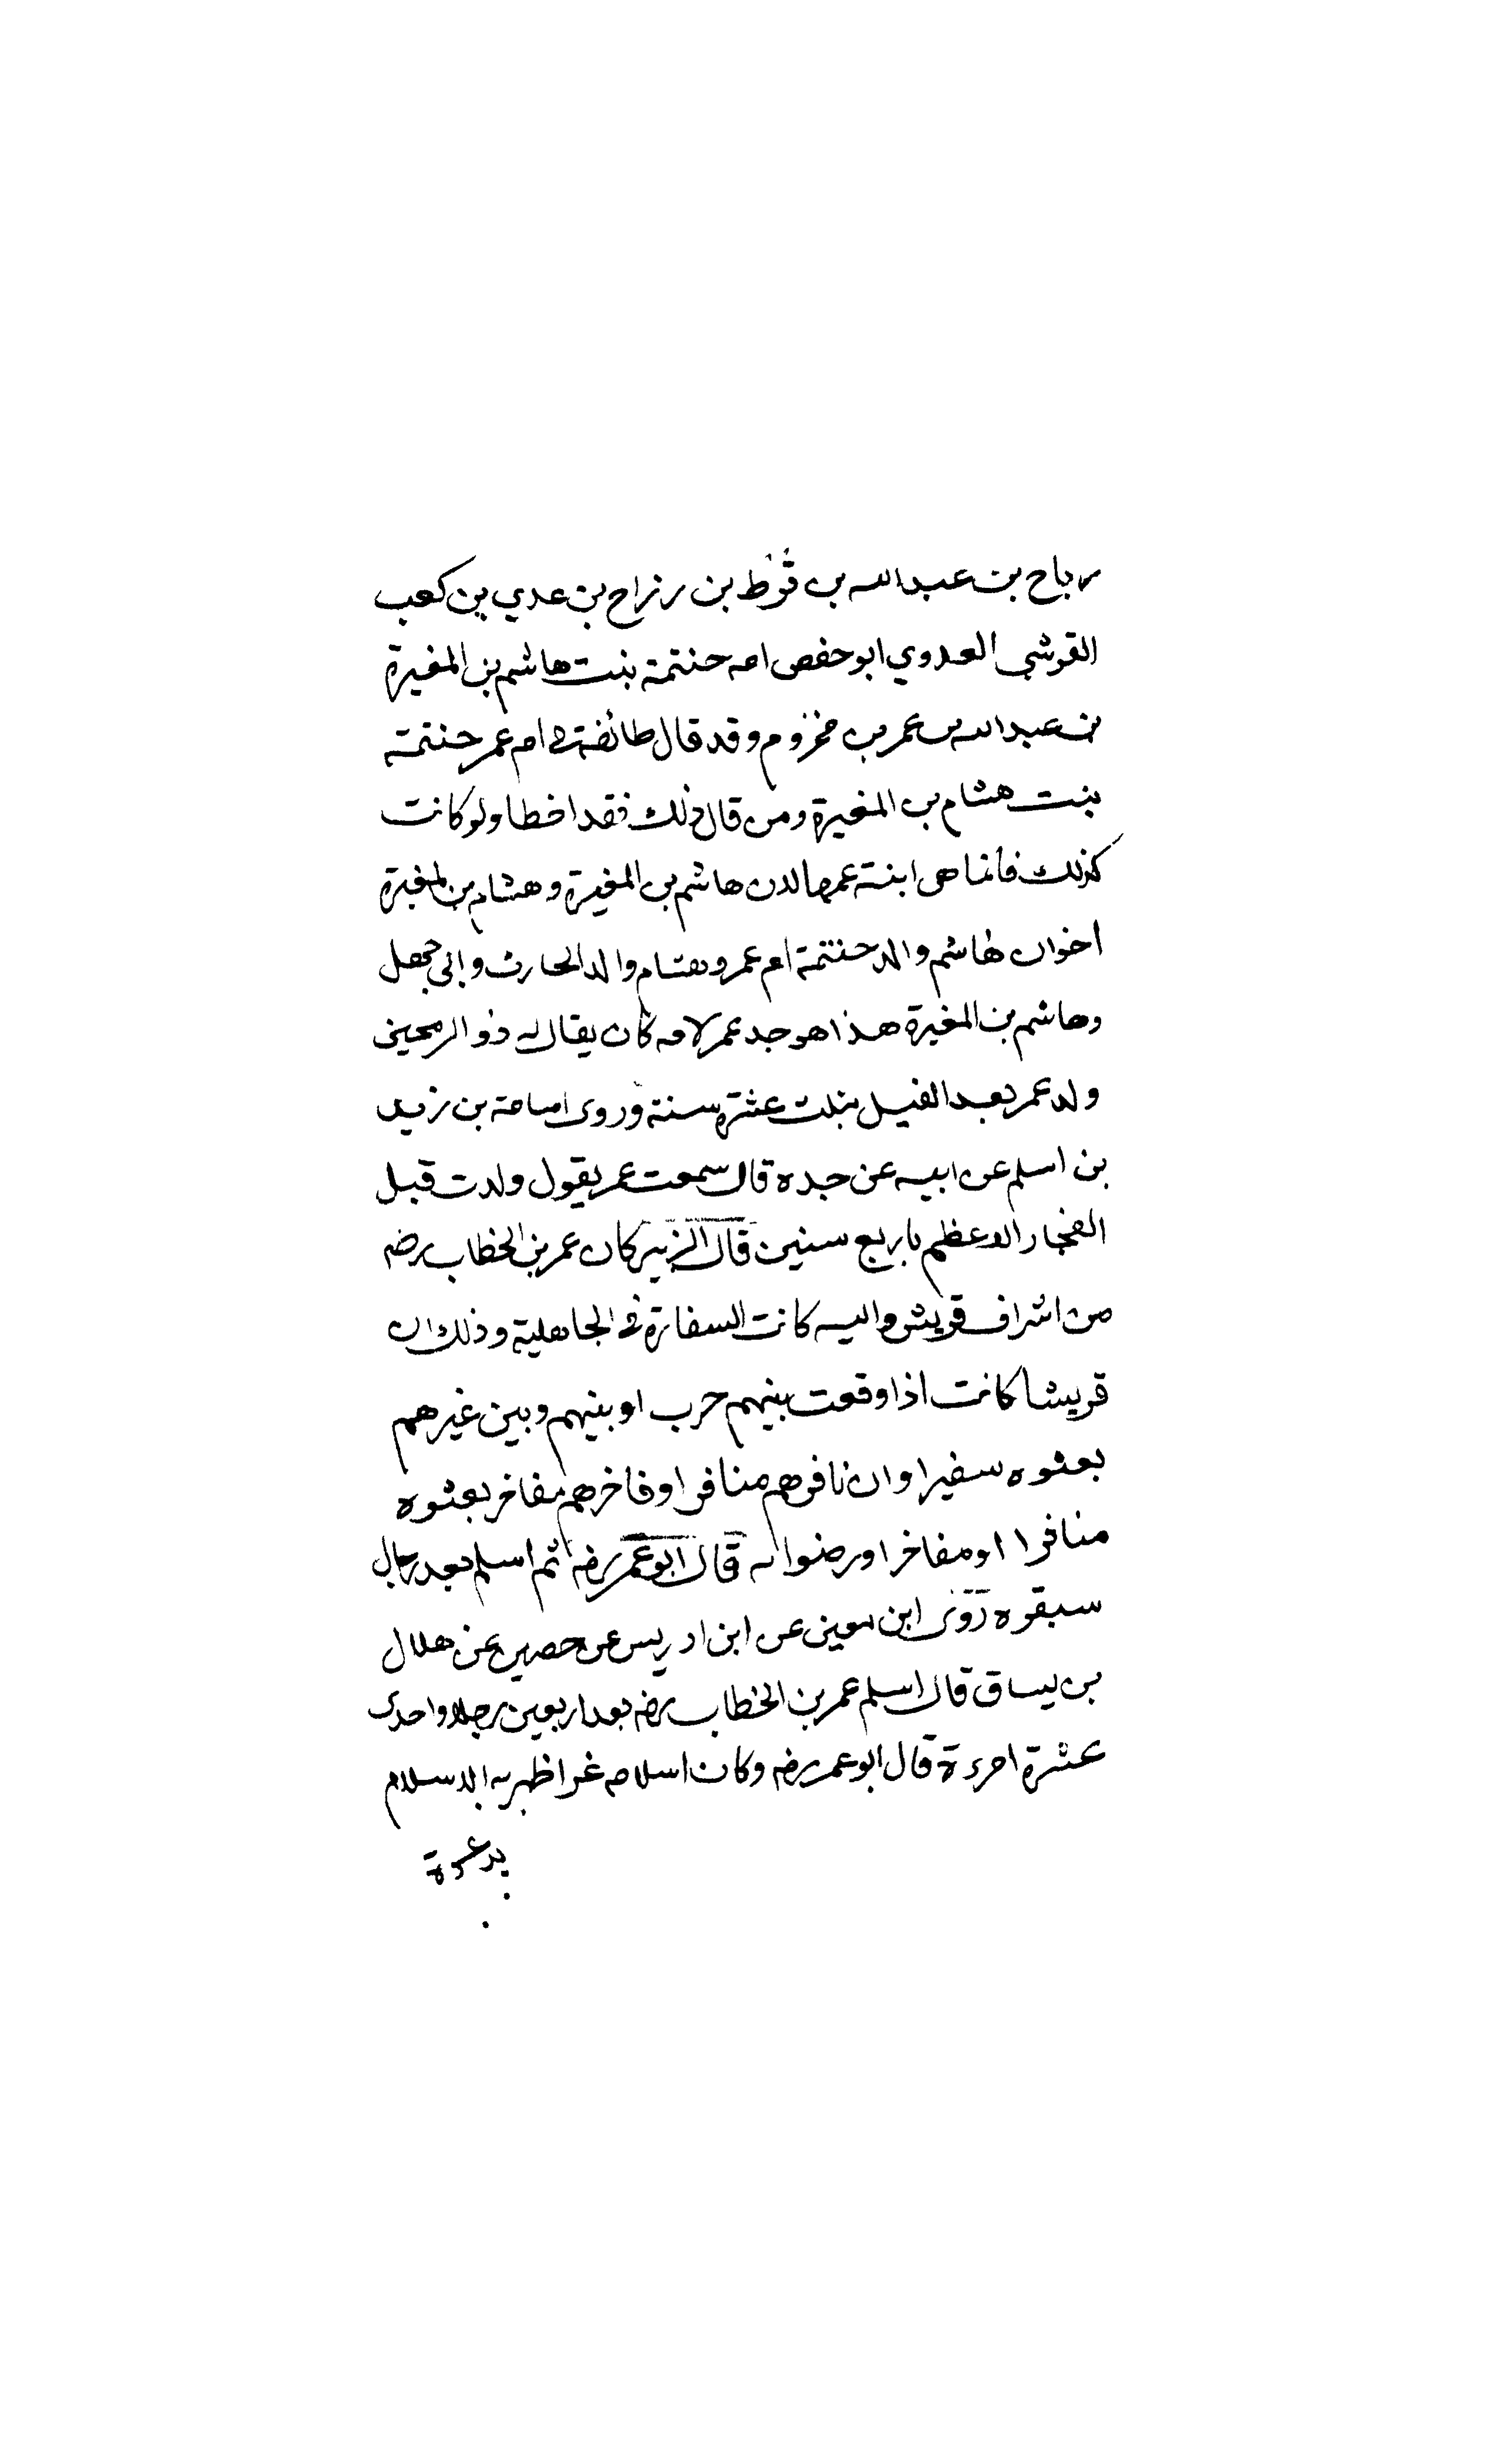 رباح بن عبد الله بن قرط بن رزاح بن عدي بن كعب
القرشي العدوي ابو حفص امه حنتمة بنت هاشم بن المغيرة
بن عبد الله بن عمر بن مخزوم وقد قال طائفة في ام عمر حنتمة
بنت هشام بن المغيرة ومن قال ذلك فقد اخطا ولو كانت
كذلك فانما هى ابنة عمها لان هاشم بن المغيرة وهشام بن المغيرة
اخوان هاشم والد حنتمة ام عمر وهشام والد الحارث وابى جهل
وهاشم بن المغيرة هذا هو جد عمر لامه كان يقال له ذو الرمحين
ولد عمر بعد الفيل بثلث عشرة سنة وروى اسامة بن زيد
بن اسلم عن ابيه عن جده قال سمعت عمر يقول ولدت قبل
الفجار الاعظم باربع سنين قال الزبير كان عمر بن الخطاب رضه
من اشراف قريش واليه كانت السفارة في الجاهلية وذلك ان
قريشا كانت اذا وقعت بينهم حرب او بينهم وبين غيرهم
بعثوه سفيرا وان نافرهم منافر او فاخرهم مفاخر بعثوه
منافرا او مفاخرا ورضوا به قال ابو عمر رضه ثم اسلم بعد رجال
سبقوه روى ابن معين عن ابن ادريس عن حصين عن هلال
بن يساق قال اسلم عمر بن الخطاب رضه بعد اربعين رجلا واحدى
عشرة امرءة قال ابو عمر رضه وكان اسلامه عزا ظهر به الاسلام
بدعوة